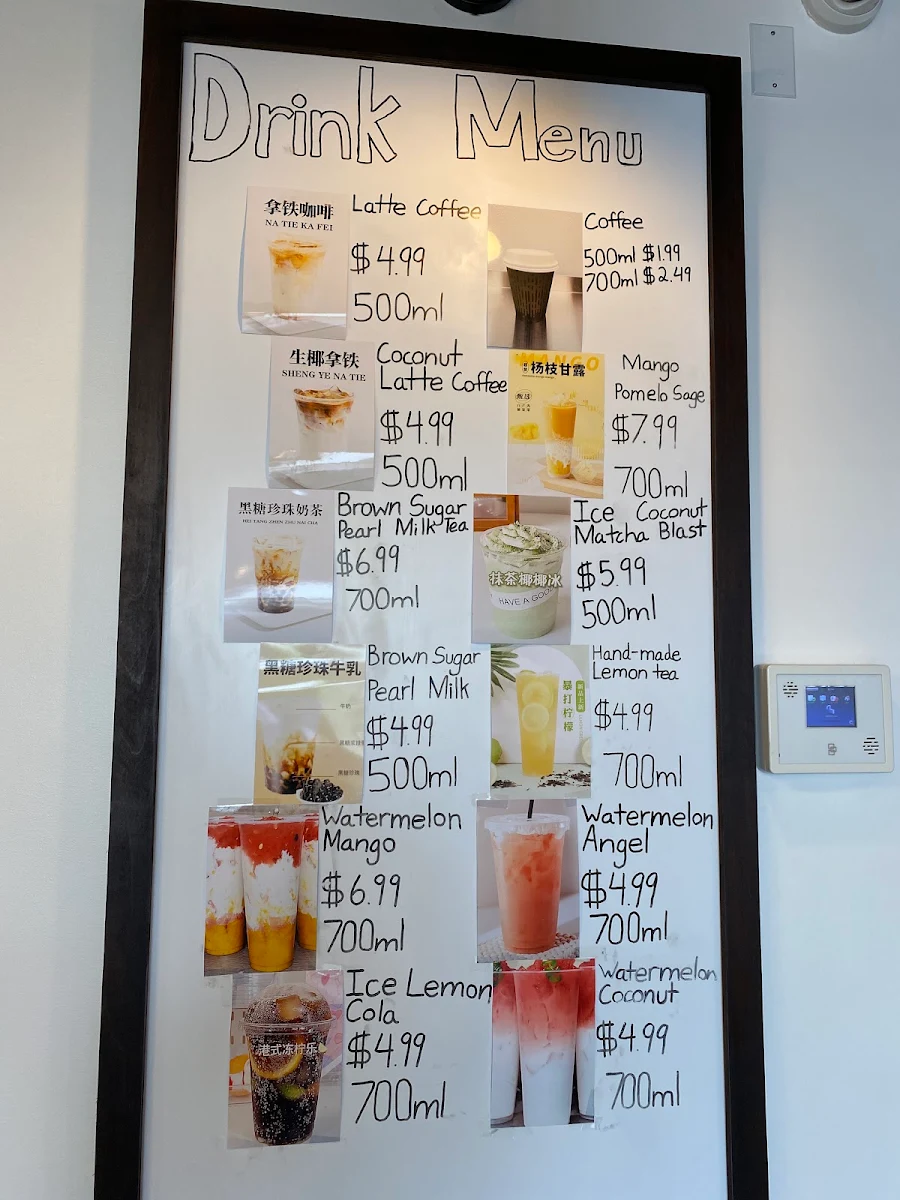 Drink Menu
拿铁咖啡
NA TIE KA FEI
Latte Coffee
$4.99
500ml
Coffee
500ml $1.99
700ml $2.49
生椰拿铁
SHENG YE NA TIE
Coconut
Latte Coffee
$4.99
500ml
MANGO
杨枝甘露
Mango
Pomelo Sage
$7.99
700ml
黑糖珍珠奶茶
HEI TANG ZHEN ZHU NAI CHA
Brown Sugar
Pearl Milk Tea
$6.99
700ml
抹茶椰椰冰
HAVE A GOOD
Ice Coconut
Matcha Blast
$5.99
500ml
黑糖珍珠牛乳
牛奶
黑糖珍珠
Brown Sugar
Pearl Milk
$4.99
500ml
暴打柠檬
Hand-made
Lemon tea
$4.99
700ml
Watermelon
Mango
$6.99
700ml
Watermelon
Angel
$4.99
700ml
港式冻柠乐
Ice Lemon
Cola
$4.99
700ml
Watermelon
Coconut
$4.99
700ml